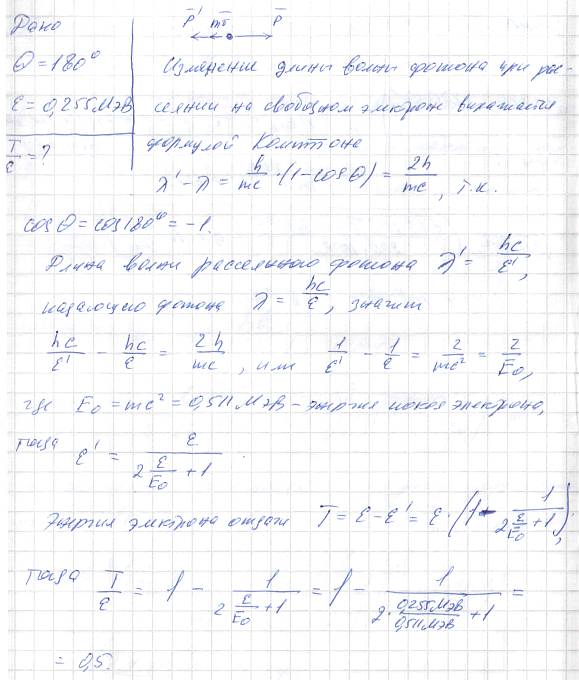 Дано
θ = 180°
ε = 0,255 МэВ
T/ε = ?
p̄' mῡ p̄
Изменение длины волны фотона при рас-
сеянии на свободном электроне выражается
формулой Комптона
λ' - λ = h/mc · (1 - cos θ) = 2h/mc, т.к.
cos θ = cos 180° = -1.
Длина волны рассеянного фотона λ' = hc/ε',
падающего фотона λ = hc/ε, значит
hc/ε' - hc/ε = 2h/mc, или 1/ε' - 1/ε = 2/mc² = 2/E₀,
где E₀ = mc² = 0,511 МэВ - энергия покоя электрона,
тогда ε' = ε/(2 ε/E₀ + 1).
Энергия электрона отдачи T = ε - ε' = ε · (1 - 1/(2 ε/E₀ + 1)),
тогда T/ε = 1 - 1/(2 ε/E₀ + 1) = 1 - 1/(2 · 0,255 МэВ/0,511 МэВ + 1) =
= 0,5.